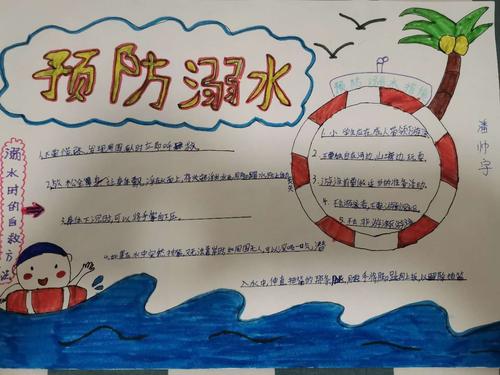 预防溺水
预防溺水措施
潘帅宇
溺水时的自救方法
1.不要慌张,发现周围有人时立即呼救。
2.放松全身,让身体飘浮在水面上,将头部浮出水面,用脚踢水
3.身体下沉时,可以将手掌向下压。
4.如果在水中突然抽筋,又无法靠岸时,如周围无人,可以深吸一口气,潜
入水中,伸直抽筋的那条腿,用手将脚趾向上扳,以解除抽筋
1.小学生应在成人带领下游泳
2.不要独自在河边,山塘边玩耍
3.游泳前要做适当的准备活动。